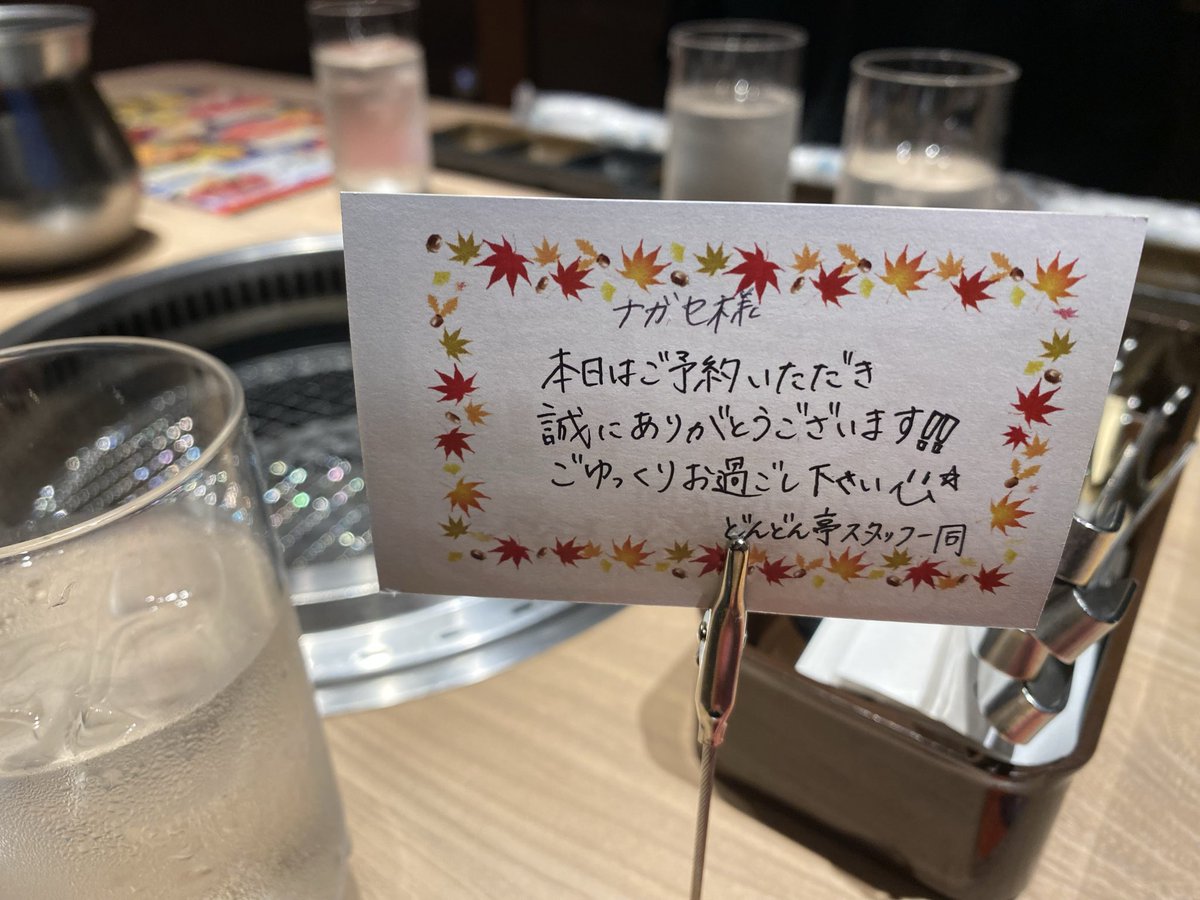 ナガセ様
本日はご予約いただき
誠にありがとうございます!!
ごゆっくりお過ごし下さい
どんどん亭スタッフ一同